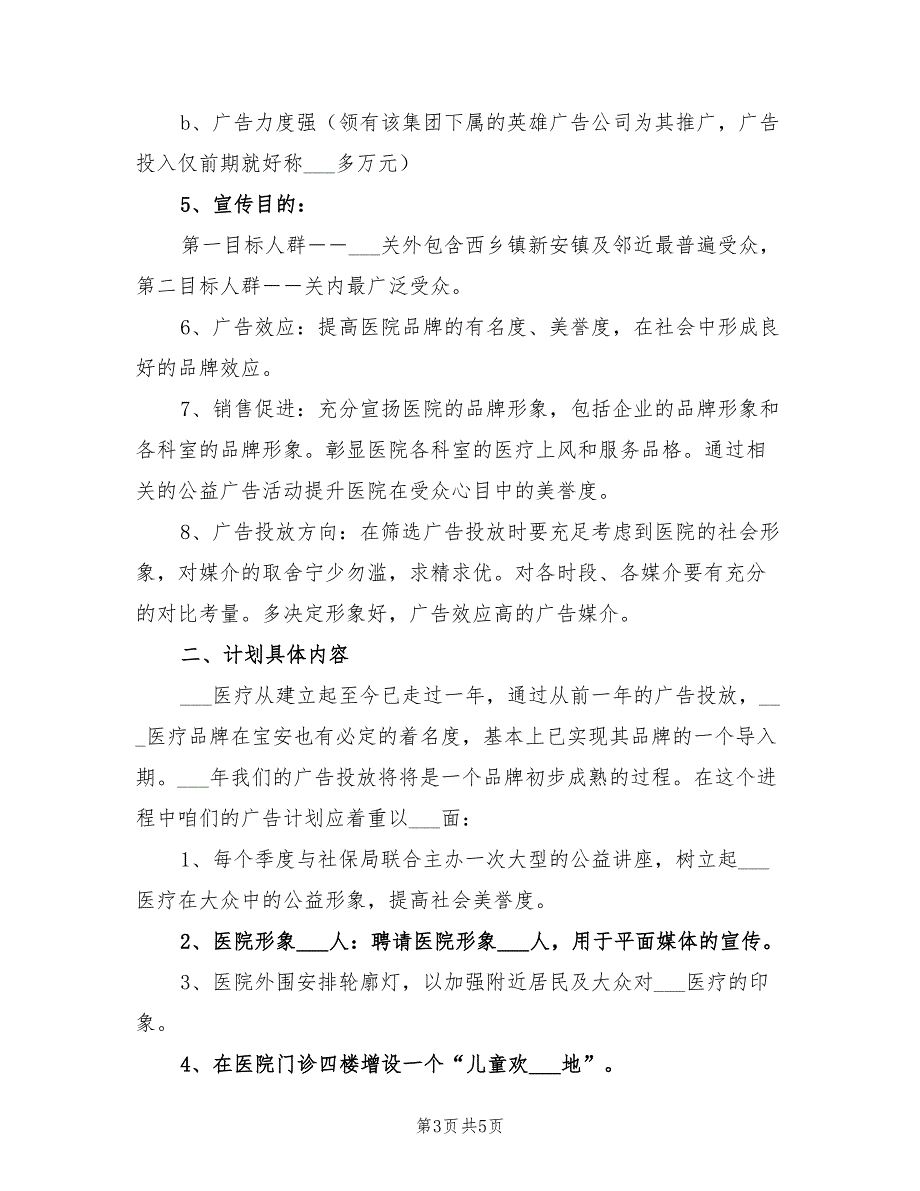 b、广告力度强（领有该集团下属的英雄广告公司为其推广，广告
投入仅前期就好称___多万元）
5、宣传目的：
第一目标人群－－___关外包含西乡镇新安镇及邻近最普遍受众，
第二目标人群－－关内最广泛受众。
6、广告效应：提高医院品牌的有名度、美誉度，在社会中形成良
好的品牌效应。
7、销售促进：充分宣扬医院的品牌形象，包括企业的品牌形象和
各科室的品牌形象。彰显医院各科室的医疗上风和服务品格。通过相
关的公益广告活动提升医院在受众心目中的美誉度。
8、广告投放方向：在筛选广告投放时要充足考虑到医院的社会形
象，对媒介的取舍宁少勿滥，求精求优。对各时段、各媒介要有充分
的对比考量。多决定形象好，广告效应高的广告媒介。
二、计划具体内容
___医疗从建立起至今已走过一年，通过从前一年的广告投放，__
_医疗品牌在宝安也有必定的着名度，基本上已实现其品牌的一个导入
期。___年我们的广告投放将将是一个品牌初步成熟的过程。在这个进
程中咱们的广告计划应着重以___面：
1、每个季度与社保局联合主办一次大型的公益讲座，树立起___
医疗在大众中的公益形象，提高社会美誉度。
2、医院形象___人：聘请医院形象___人，用于平面媒体的宣传。
3、医院外围安排轮廓灯，以加强附近居民及大众对___医疗的印
象。
4、在医院门诊四楼增设一个“儿童欢___地”。
第3页 共5页